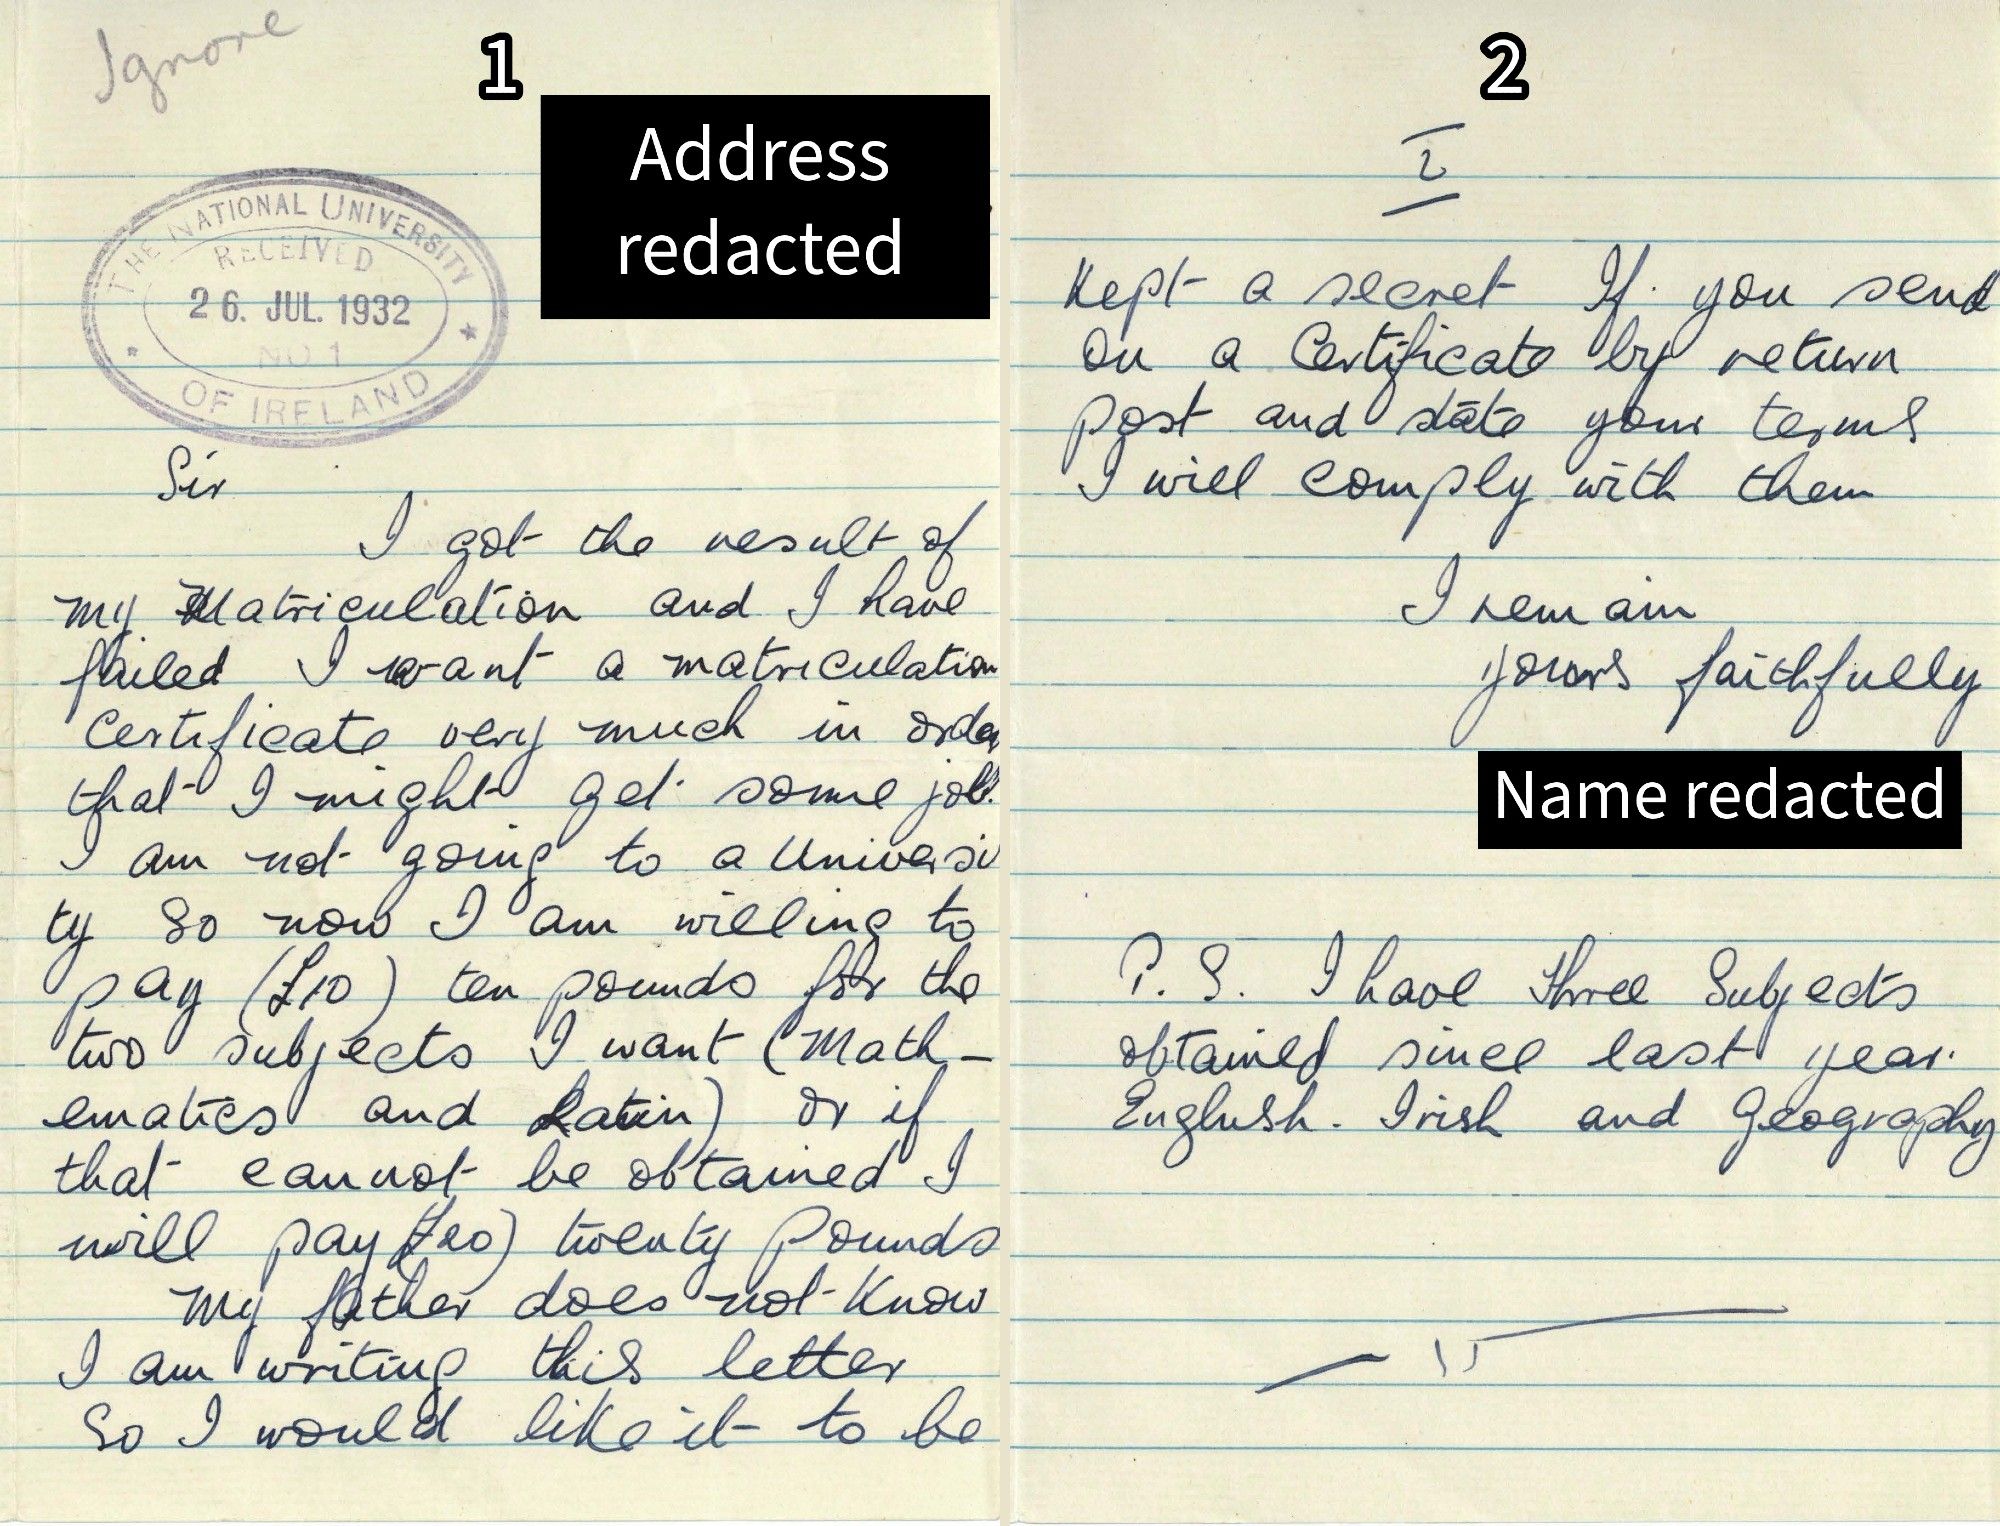 Ignore
1
Address
redacted
THE NATIONAL UNIVERSITY
RECEIVED
26. JUL. 1932
NO 1
OF IRELAND
Sir
I got the result of
my Matriculation and I have
failed I want a matriculation
Certificate very much in order
that I might get some job.
I am not going to a Universi
ty So now I am willing to
pay (£10) ten pounds for the
two subjects I want (Math–
ematics and Latin) or if
that cannot be obtained I
will pay (£20) twenty Pounds
My father does not Know
I am writing this letter
So I would like it to be
2
2
Kept a secret If you send
On a Certificate by return
post and state your terms
I will comply with them
I remain
yours faithfully
Name redacted
P. S. I have three Subjects
obtained since last year.
English. Irish and Geography